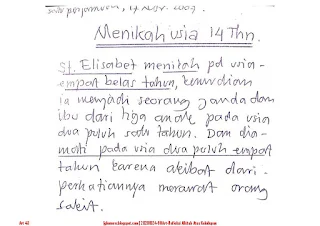 Menikah usia 14 Thn.
St. Elisabet menikah pd usia
empat belas tahun, kemudian
ia menjadi seorang janda dan
ibu dari tiga anak pada usia
dua puluh satu tahun. Dan dia
mati pada usia dua puluh empat
tahun karena akibat dari
perhatiannya merawat orang
sakit.